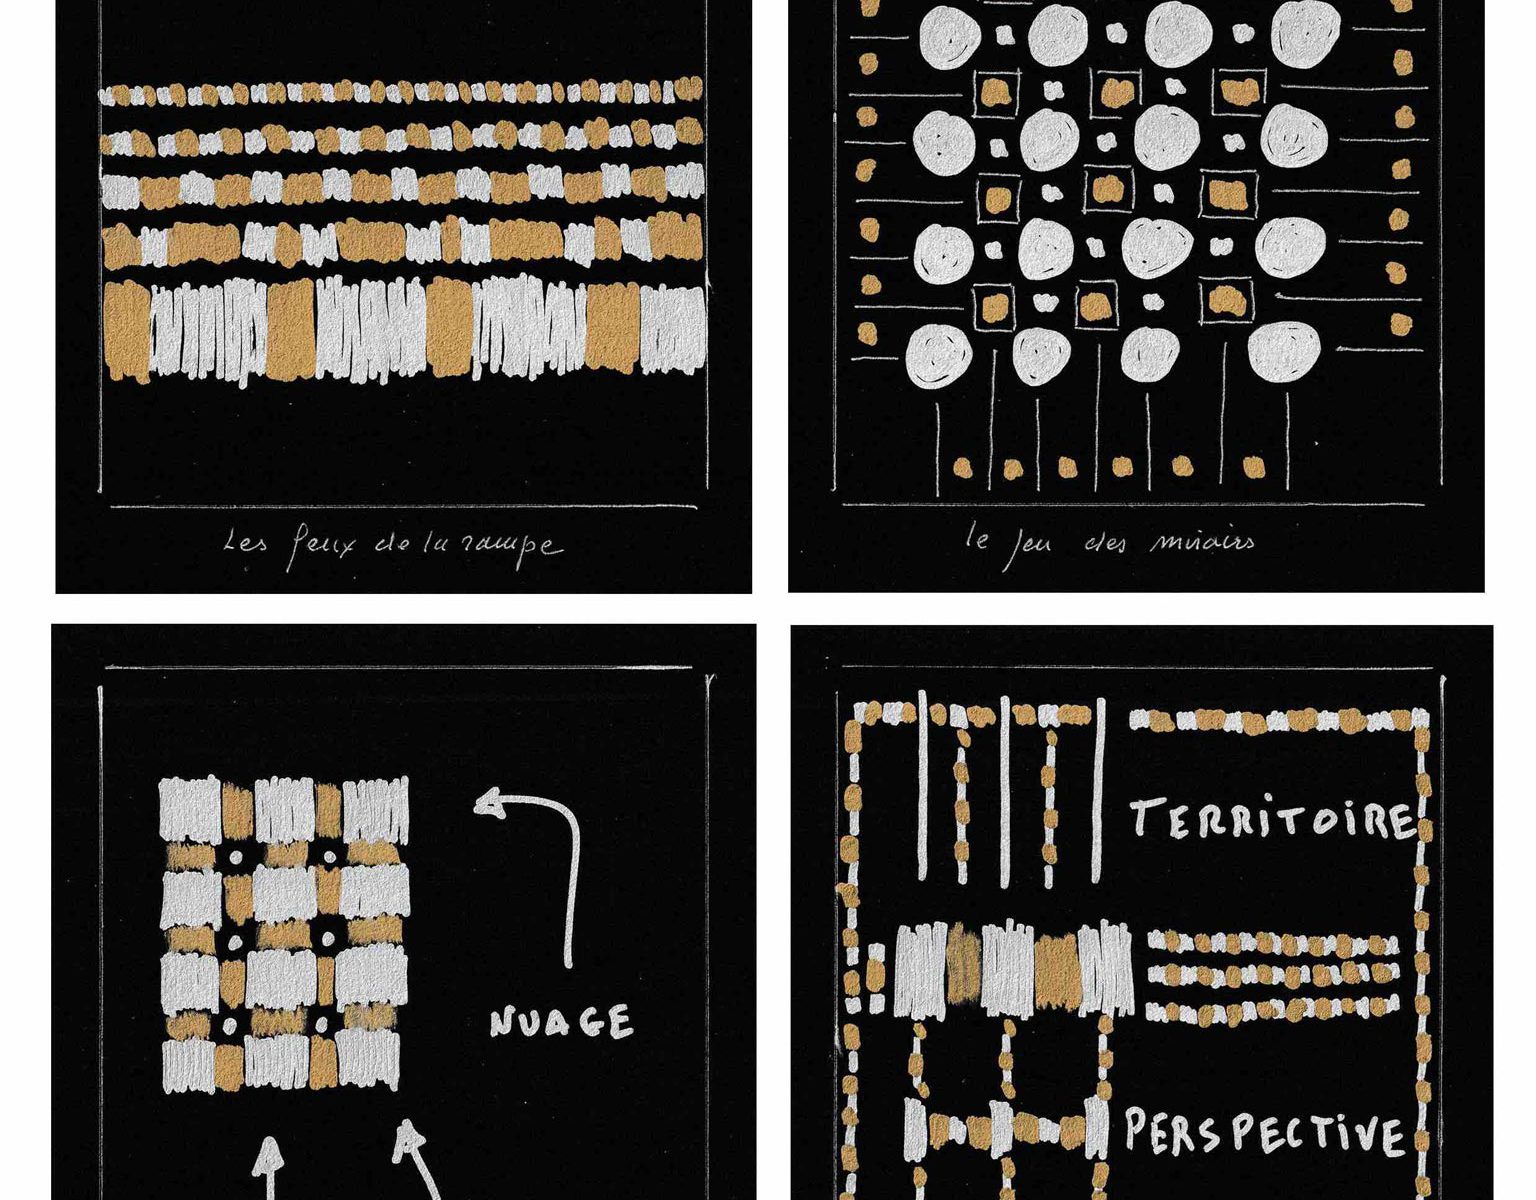 Les feux de la rampe
le jeu des miroirs
NUAGE
TERRITOIRE
PERSPECTIVE